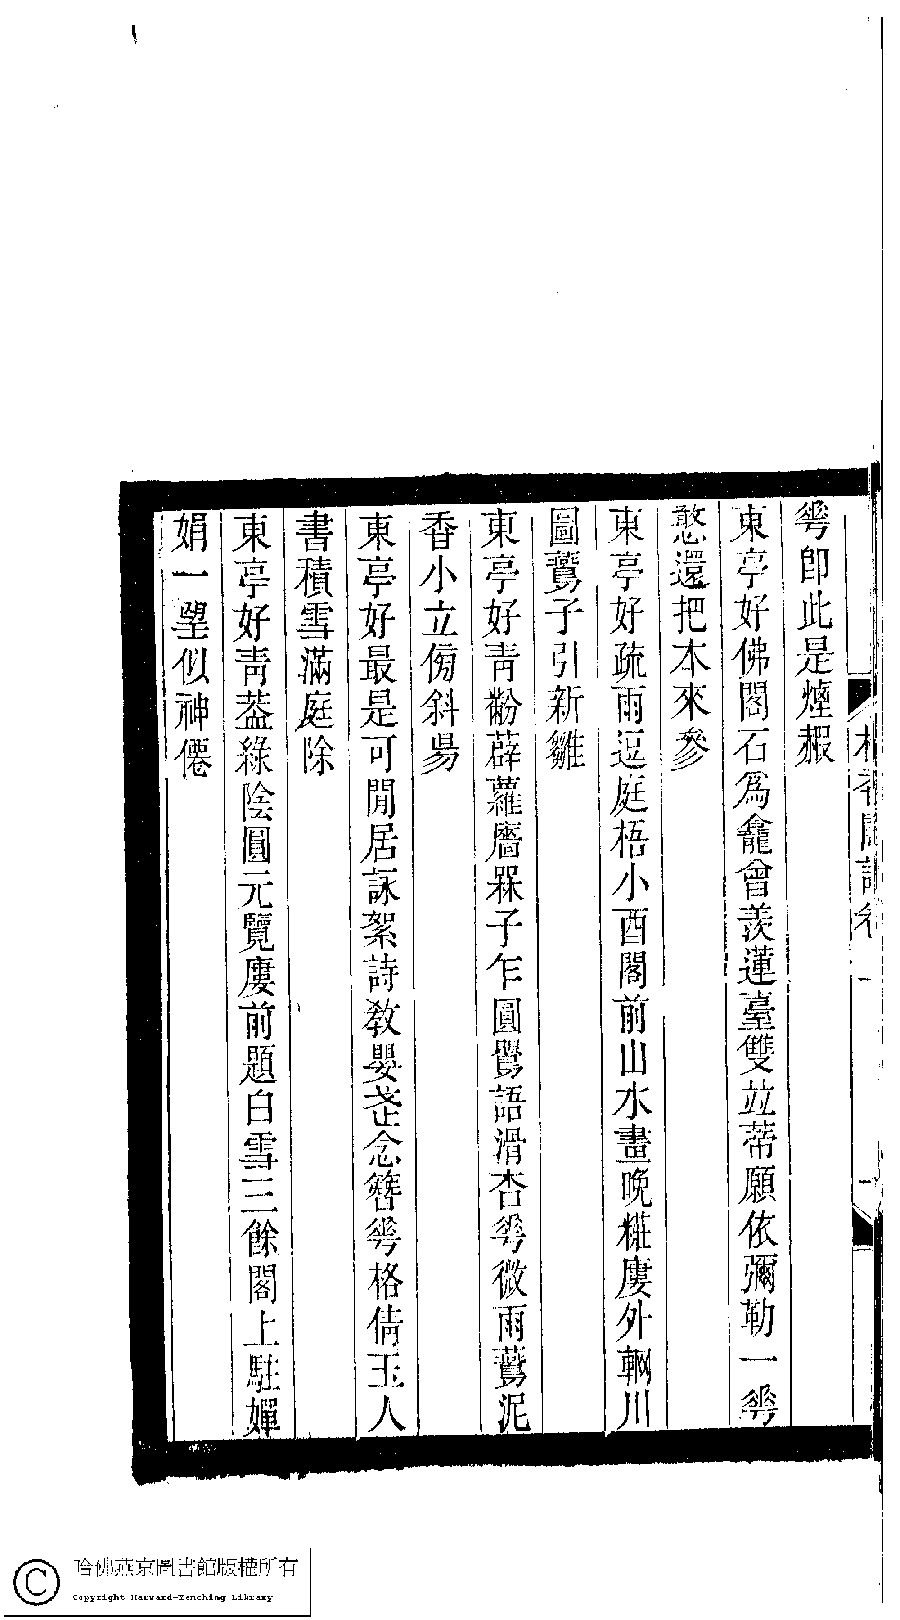 琴卽此是煙赮
東亭好佛閣石爲龕曾羨蓮臺雙竝蒂願依彌勒一琴
憨還把本來參
東亭好疏雨逗庭梧小酉閣前山水畫晚糚廔外輞川
圖鷰子引新雛
東亭好靑黺薜蘿廧槑子乍圓鷪語滑杏琴微雨鷰泥
香小立傍斜昜
東亭好最是可閒居詠絮詩敎嬰㐂念簪琴格倩玉人
書積雪滿庭除
東亭好靑葢綠陰圓元覽廔前題白雪三餘閣上駐嬋
娟一望似神僊
哈佛燕京圖書館版權所有
Copyright Harvard-Yenching Library